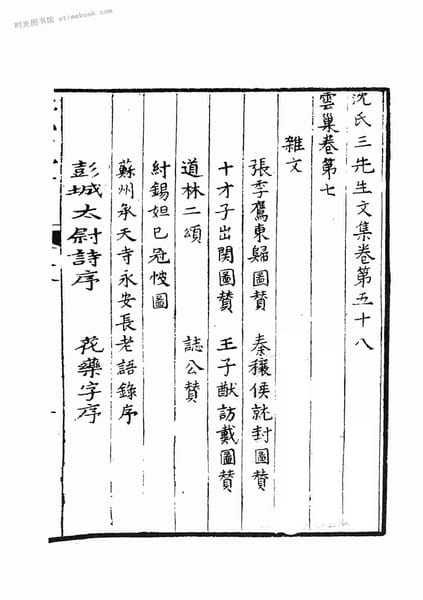 时光图书馆 atimebook.com
沈氏三先生文集卷第五十八
雲巢卷第七
雜文
張季鷹東歸圖賛　秦穰侯就封圖賛
十才子出関圖賛　王子猷訪戴圖賛
道林二頌　誌公賛
紂錫妲己冠帔圖
蘇州承天寺永安長老語錄序
彭城太尉詩序　花藥字序